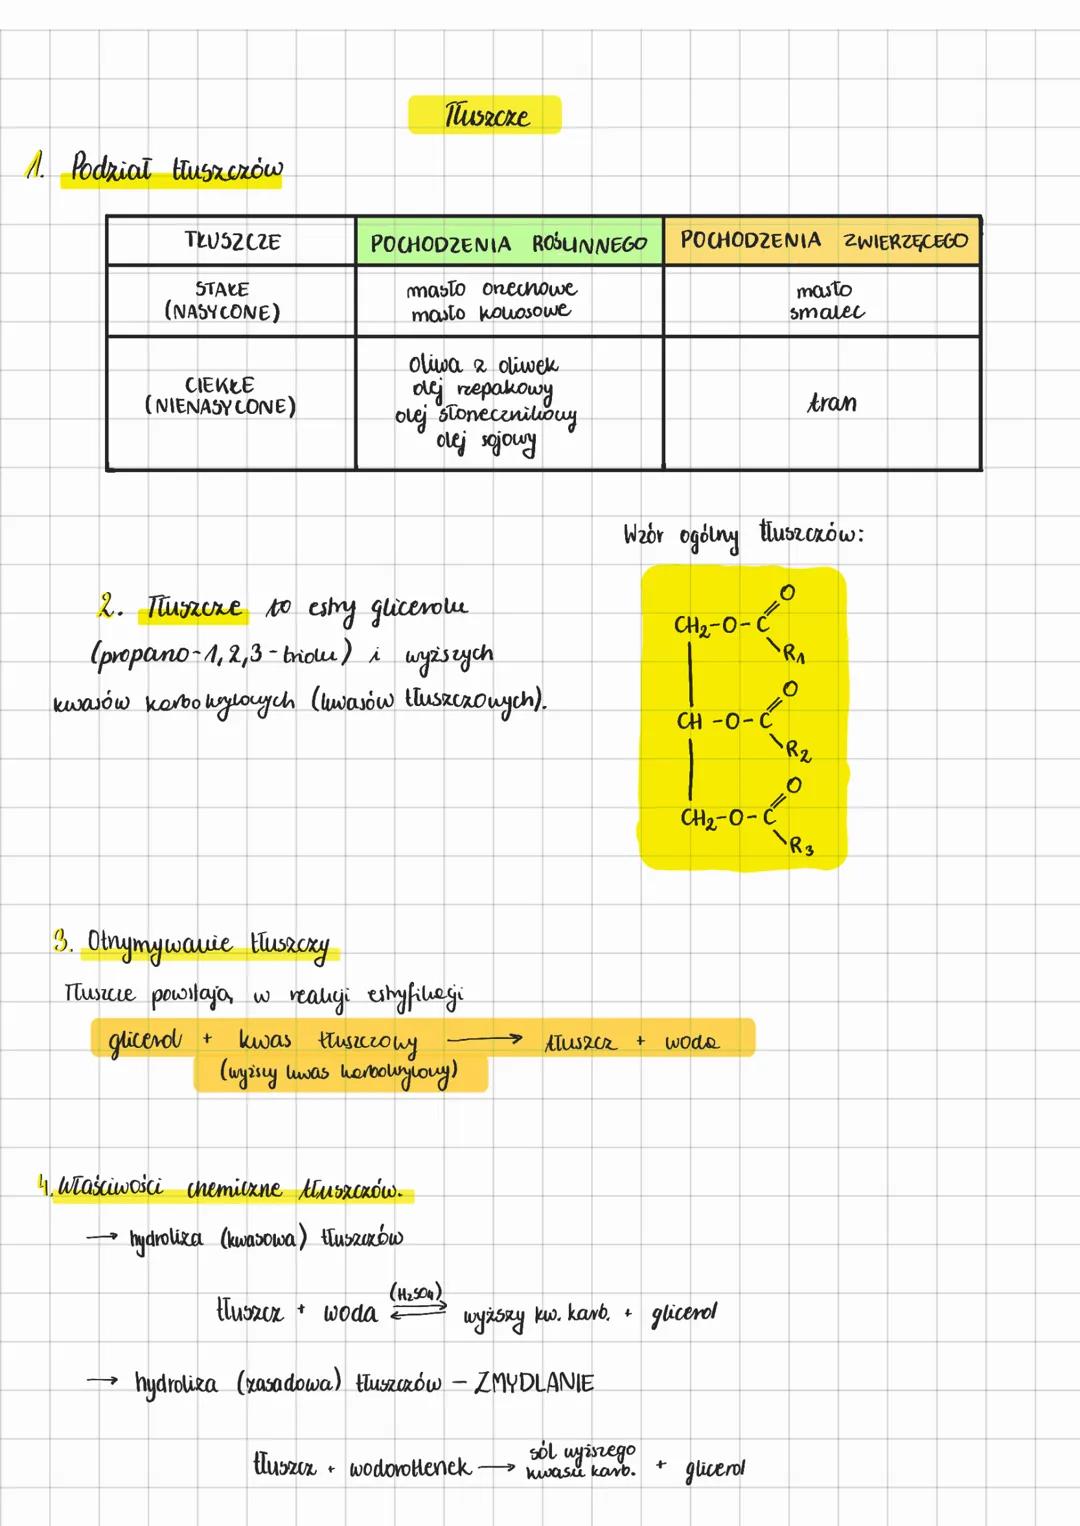 Tłuszcze
1. Podział tłuszczów
TŁUSZCZE POCHODZENIA ROŚLINNEGO POCHODZENIA ZWIERZĘCEGO
STAŁE (NASYCONE) masło orzechowe masło kokosowe masło smalec
CIEKŁE (NIENASYCONE) oliwa z oliwek olej rzepakowy olej słonecznikowy olej sojowy tran
Wzór ogólny tłuszczów:
2. Tłuszcze to estry glicerolu
(propano-1,2,3-triolu) i wyższych
kwasów karboksylowych (kwasów tłuszczowych).
O
CH2-O-C
R1
O
CH-O-C
R2
O
CH2-O-C
R3
3. Otrzymywanie tłuszczy
Tłuszcze powstają w reakcji estryfikacji
glicerol + kwas tłuszczowy → tłuszcz + woda
(wyższy kwas karboksylowy)
4. Właściwości chemiczne tłuszczów.
→ hydroliza (kwasowa) tłuszczów
(H2SO4)
tłuszcz + woda ⇌ wyższy kw. karb. + glicerol
→ hydroliza (zasadowa) tłuszczów – ZMYDLANIE
tłuszcz + wodorotlenek → sól wyższego kwasu karb. + glicerol